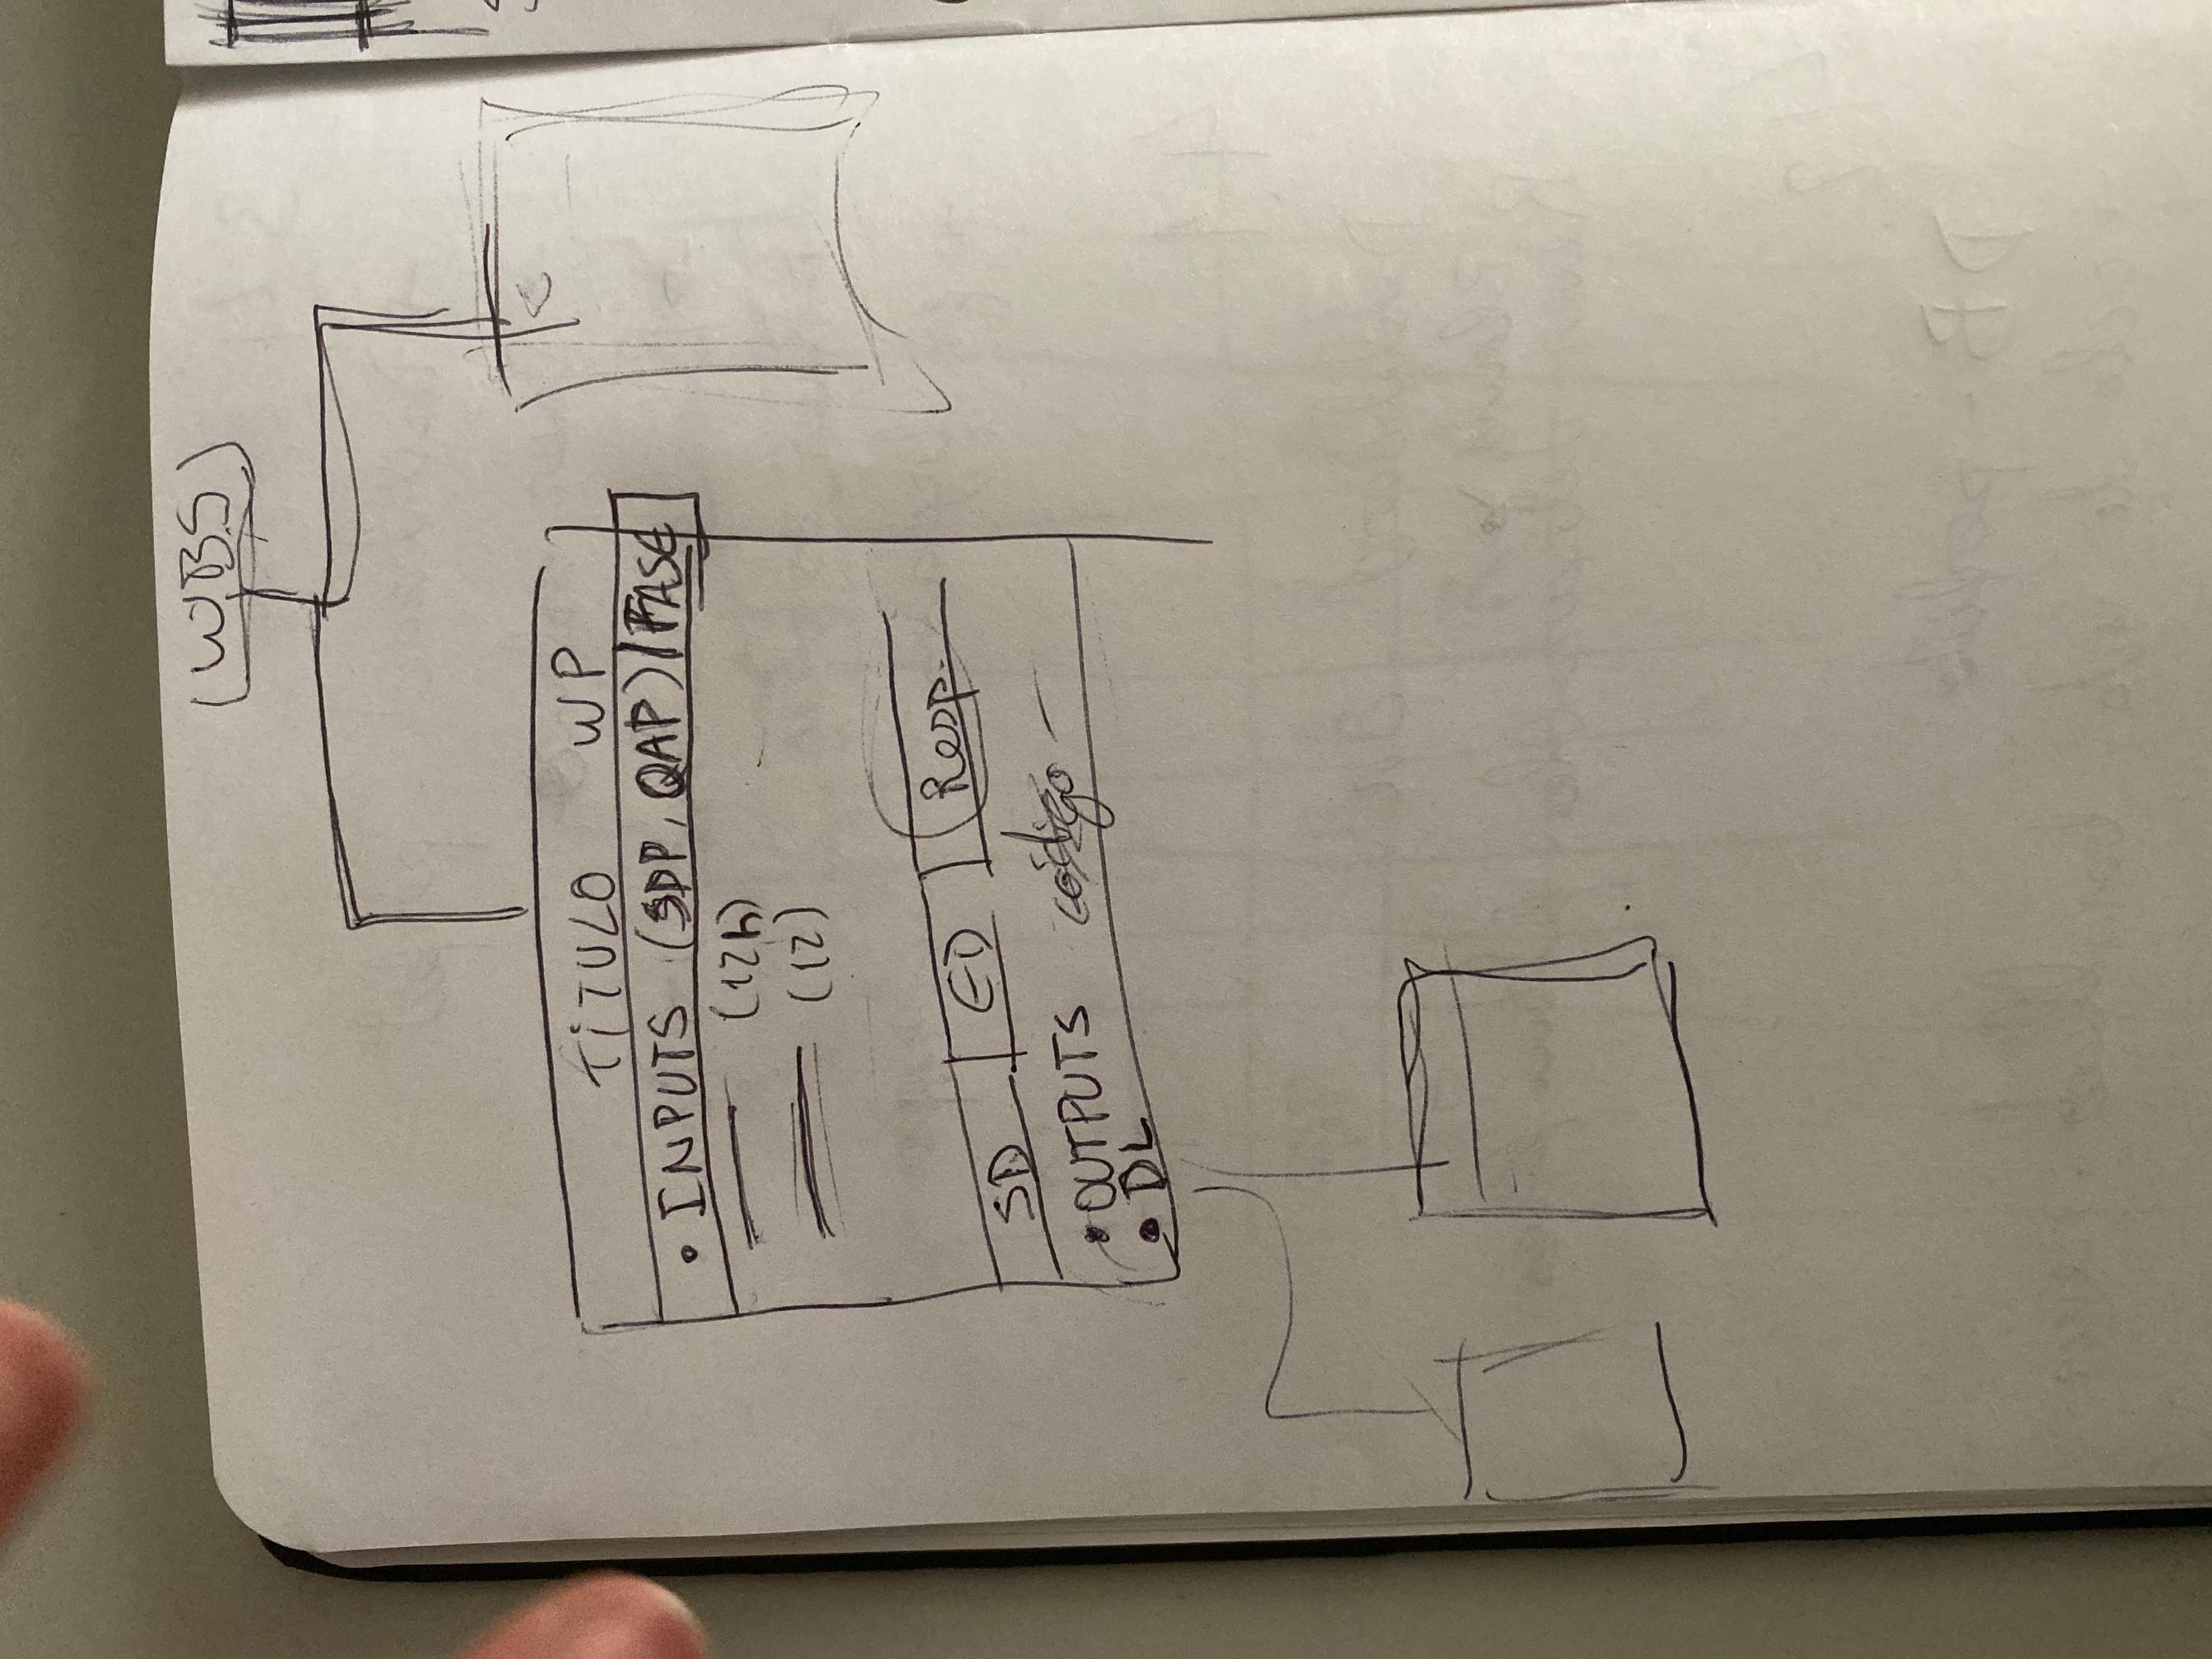 (WBS)
TÍTULO WP
• INPUTS (SDP, QAP) / FASE
(12h)
(12)
SD ED Resp.
• OUTPUTS código -
• DL